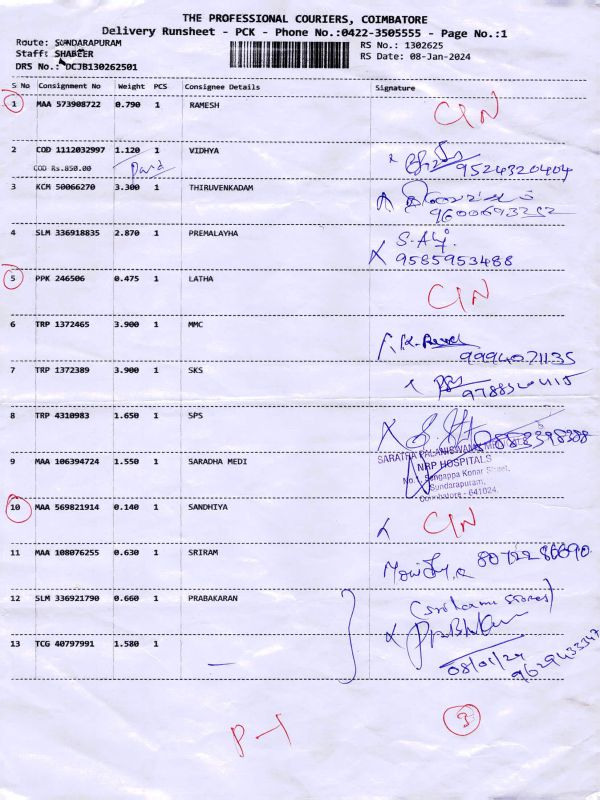 THE PROFESSIONAL COURIERS, COIMBATORE
Delivery Runsheet - PCK - Phone No.:0422-3505555 - Page No.:1
Route: SUNDARAPURAM
Staff: SHABEER
DRS No.: DCJB130262501
RS No.: 1302625
RS Date: 08-Jan-2024
S No Consignment No Weight PCS Consignee Details Signature
1 MAA 573908722 0.790 1 RAMESH CIN
2 COD 1112032997 1.120 1 VIDHYA 9524320404
COD Rs.850.00 Paid
3 KCM 50066270 3.300 1 THIRUVENKADAM
4 SLM 336918835 2.870 1 PREMALAYHA
9585953488
5 PPK 246506 0.475 1 LATHA CIN
6 TRP 1372465 3.900 1 MMC
9994071135
7 TRP 1372389 3.900 1 SKS
8 TRP 4310983 1.650 1 SPS
SARATHA PALANISWAMY
NRP HOSPITALS
9 MAA 106394724 1.550 1 SARADHA MEDI
No.1, Sengappa Konar Street,
Sundarapuram,
Coimbatore - 641024.
10 MAA 569821914 0.140 1 SANDHIYA CIN
11 MAA 108076255 0.630 1 SRIRAM
12 SLM 336921790 0.660 1 PRABAKARAN
13 TCG 40797991 1.580 1
08/01/24
9629433347
P-1
3